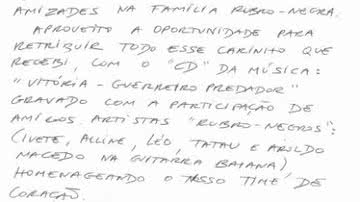 AMIZADES NA FAMÍLIA RUBRO-NEGRA.
APROVEITO A OPORTUNIDADE PARA
RETRIBUIR TODO ESSE CARINHO QUE
RECEBI, COM O "CD" DA MÚSICA:
"VITÓRIA - GUERREIRO PREDADOR"
GRAVADO COM A PARTICIPAÇÃO DE
AMIGOS ARTISTAS "RUBRO-NEGROS":
(IVETE, ALLINE, LÉO, TATAU E AROLDO
MACEDO NA GUITARRA BAIANA)
HOMENAGEANDO O NOSSO TIME DE
CORAÇÃO.